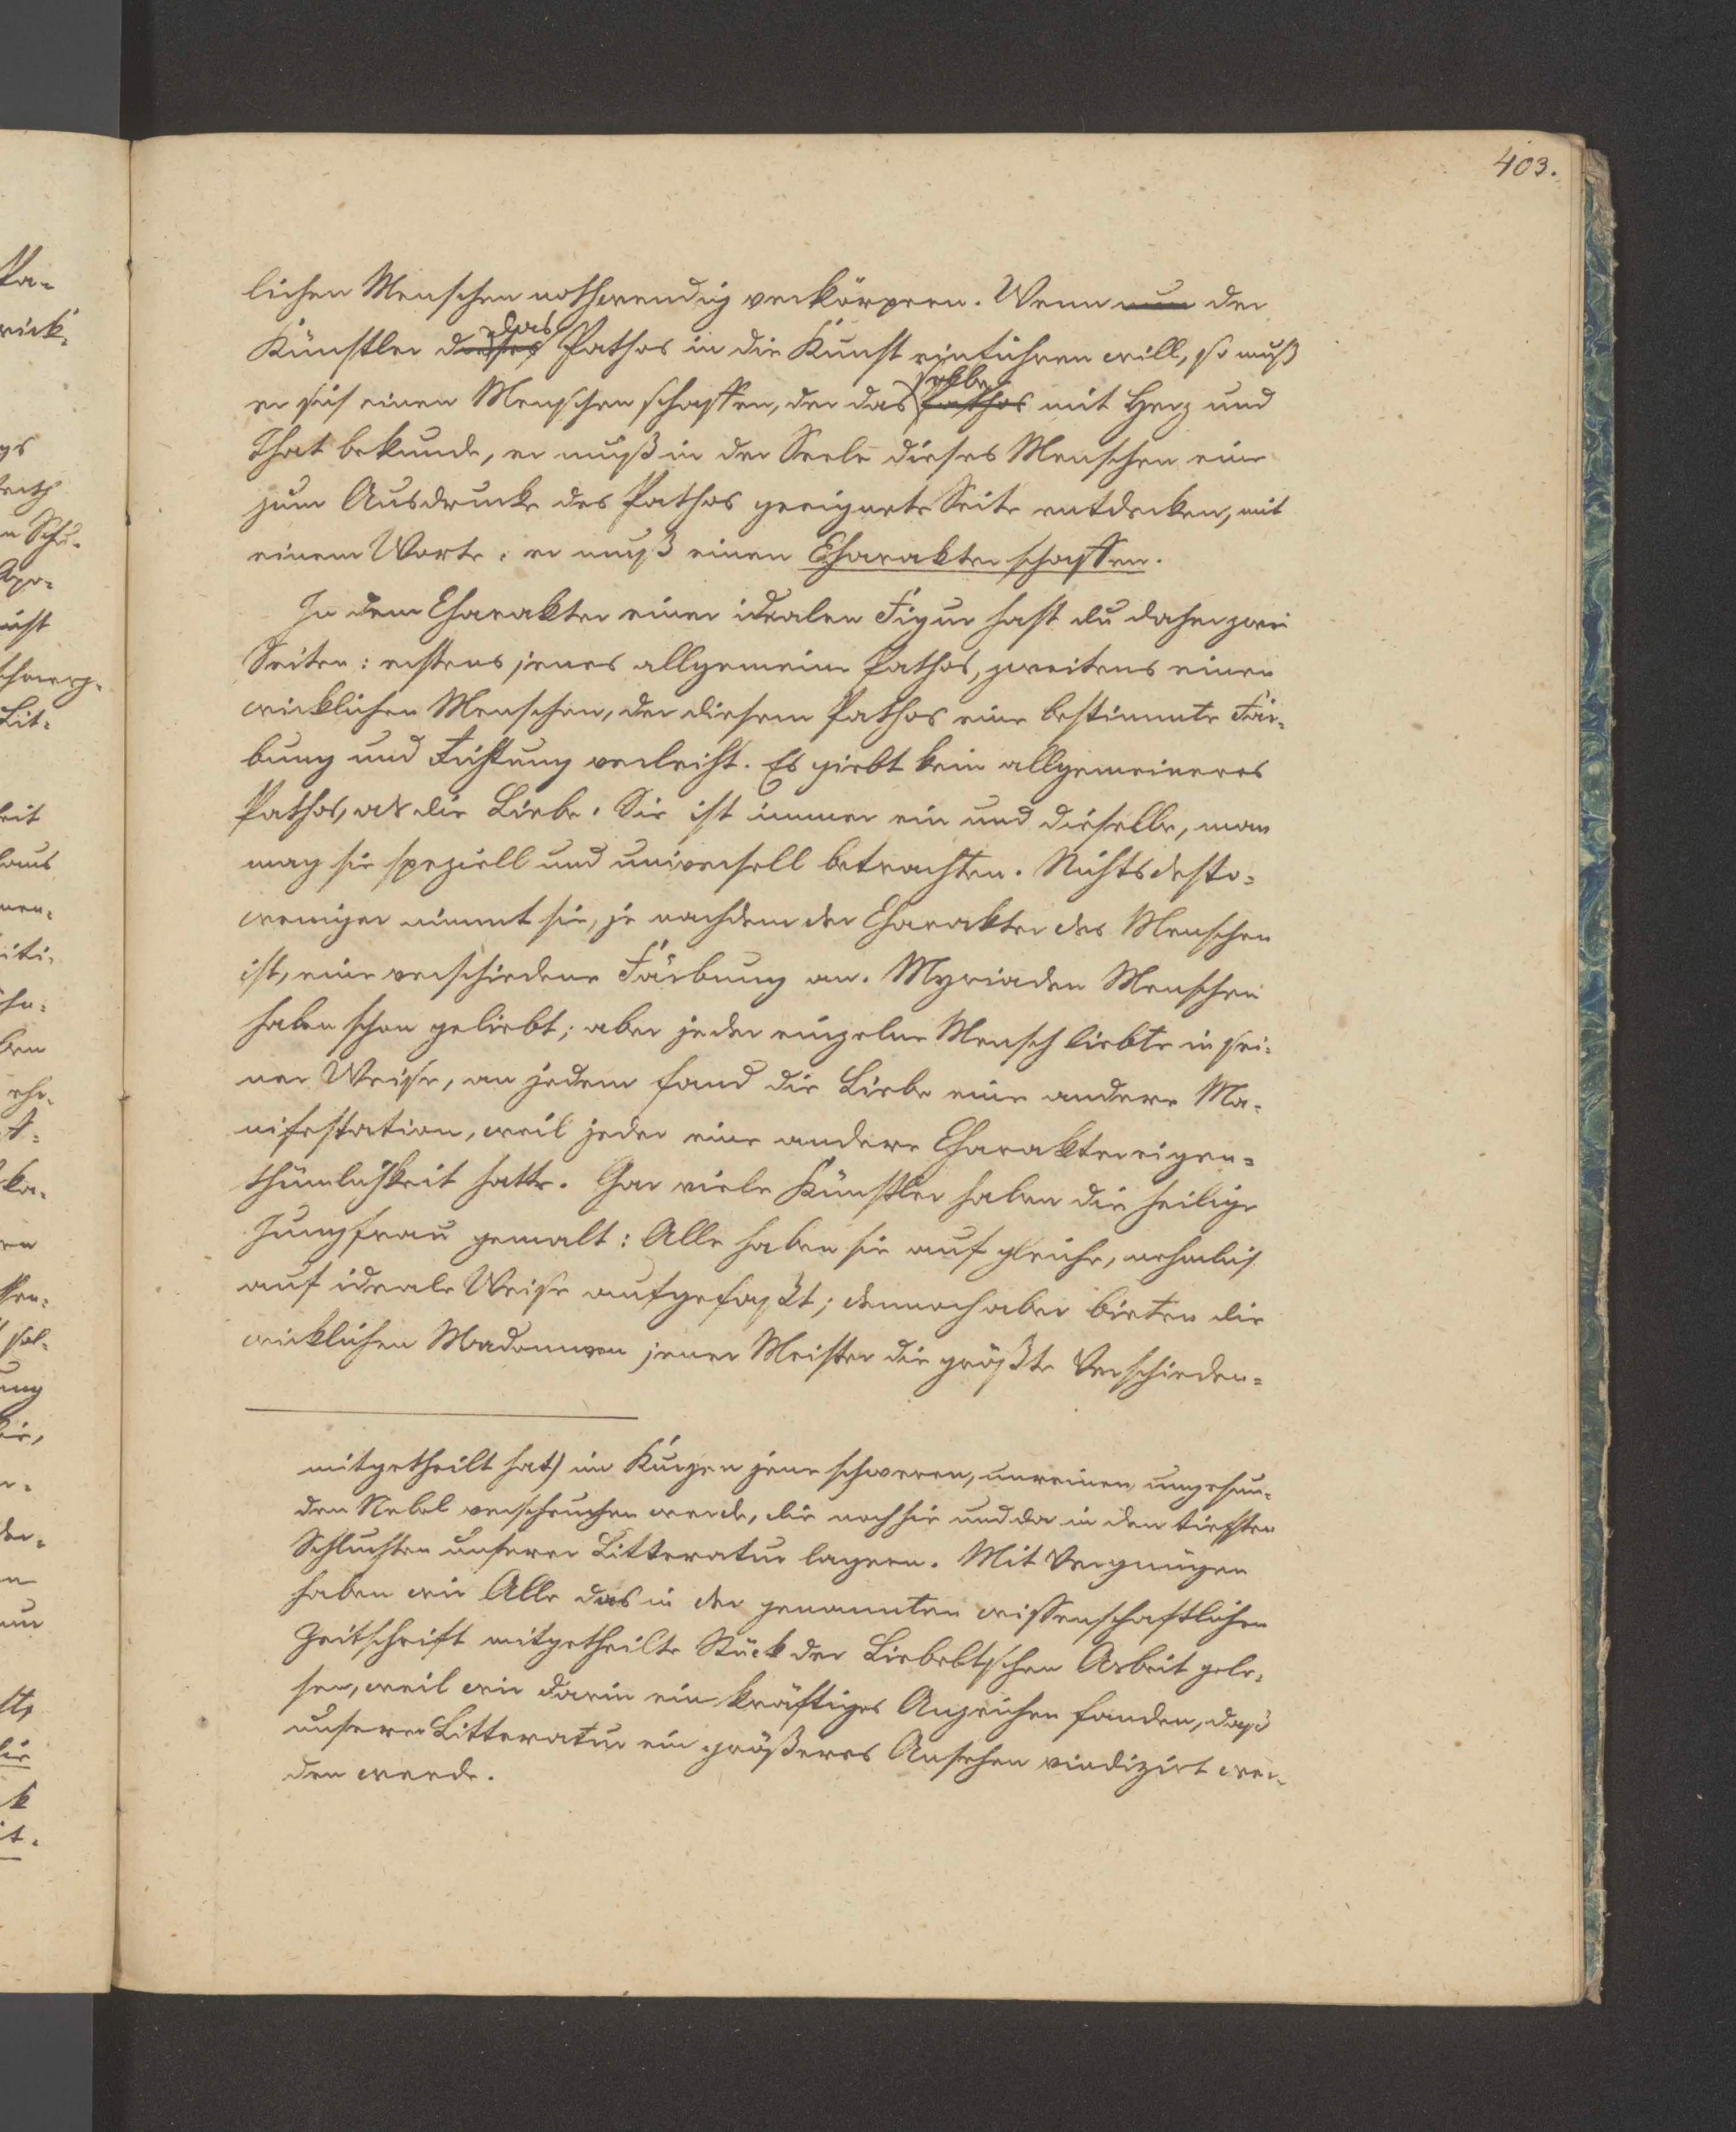 403.
lichen Menschen nothwendig verkörpern. Wenn nun der
Künstler dieses das Pathos in die Kunst einführen will, so muß
er sich einen Menschen schaffen, der das Pathos selbe mit Herz und
That bekunde, er muß in der Seele dieses Menschen eine
zum Ausdrucke des Pathos geeignete Seite entdecken, mit
einem Worte: er muß einen Charakter schaffen.
In dem Charakter einer idealen Figur hast du daher zwei
Seiten: erstens jenes allgemeine Pathos, zweitens einen
wirklichen Menschen, der diesem Pathos eine bestimmte Fär-
bung und Richtung verleiht. Es giebt kein allgemeineres
Pathos, als die Liebe. Sie ist immer ein und dieselbe, man
mag sie speziell und universell betrachten. Nichtsdesto-
weniger nimmt sie, je nachdem der Charakter des Menschen
ist, eine verschiedene Färbung an. Myriaden Menschen
haben schon geliebt; aber jeder einzelne Mensch liebte in sei-
ner Weise, an jedem fand die Liebe eine andere Ma-
nifestation, weil jeder eine andere Charaktereigen-
thümlichkeit hatte. Gar viele Künstler haben die heilige
Jungfrau gemalt: Alle haben sie auf gleiche, nehmlich
auf ideale Weise aufgefaßt; dennoch aber bieten die
wirklichen Madonnen jener Meister die größte Verschieden-
mitgetheilt hat) in Kurzen jene schweren, unreinen, ungesun-
den Nebel verscheuchen werde, die noch hie und da in den tiefsten
Schluchten unserer Litteratur lagern. Mit Vergnügen
haben wir Alle das in der genannten wissenschaftlichen
Zeitschrift mitgetheilte Stück der Liebeltschen Arbeit gele-
sen, weil wir darin ein kräftiges Anzeichen fanden, daß
unserer Litteratur ein größeres Ansehen vindizirt wer-
den werde.